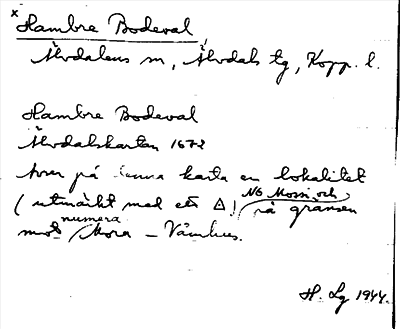 x Hambre Bodeval
Älvdalens sn, Älvdals tg, Kopp. l.
Hambre Bodeval
Älvdalskartan 1672
över på denna karta en lokalitet
(utmärkt med ett △) NO Mossi och på gränsen
mot numera Mora – Våmhus.
H. Lg 1944.